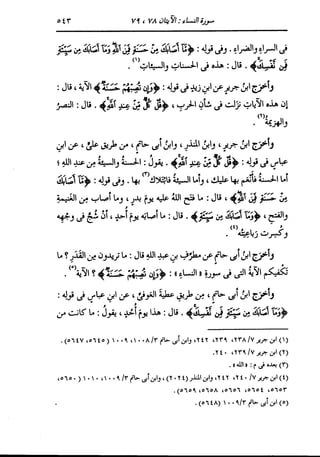 سورة النساء : الآيتان ٧٨ ، ٧٩
٥٤٣
فى السراء والضراء . وفى قوله : ﴿ما أصابك من حسنة فمن الله وما أصابك من سيئة
فمن نفسك﴾ . قال : هذه فى الحسنات والسيئات(١) .
وأخرج ابن جرير عن ابن زيد فى قوله : ﴿وإن تصبهم حسنة﴾ الآية ، قال :
إن هذه الآيات نزلت فى شأن الحرب ، ﴿قل كل من عند الله﴾ . قال : النصر
والهزيمة(٢) .
وأخرج ابن جرير ، وابن المنذر ، وابن أبى حاتم ، من طريق على ، عن ابن
عباس فى قوله : ﴿قل كل من عند الله﴾ . يقول : الحسنة والسيئة من عند الله ؛
أما الحسنة فأنعم بها عليك ، وأما السيئة فابتلاك(٣) بها . وفى قوله : ﴿ما أصابك
من حسنة فمن الله﴾ ، قال : ما فتح الله عليه يوم بدر ، وما أصاب من الغنيمة
والفتح ، ﴿وما أصابك من سيئة﴾ . قال : ما أصابه يوم أحد ، أن شج فى وجهه
وكسرت رباعيته(٤) .
وأخرج ابن أبى حاتم عن مطرف بن عبد الله قال : ما تريدون من القدر ؟ ما
تكفيكم الآية التى فى سورة « النساء » : ﴿وإن تصبهم حسنة﴾ ؟ الآية(٥) .
وأخرج ابن أبى حاتم ، من طريق عطية العوفى ، عن ابن عباس فى قوله :
﴿وما أصابك من سيئة فمن نفسك﴾ . قال : هذا يوم أحد ، يقول : ما كانت من
(١) ابن جرير ٧/ ٢٣٨، ٢٣٩، ٢٤٢، وابن أبى حاتم ٣/ ١٠٠٨، ١٠٠٩ (٥٦٤٥، ٥٦٤٧).
(٢) ابن جرير ٧/ ٢٣٩، ٢٤٠.
(٣) بعده فى م : « الله » .
(٤) ابن جرير ٧/ ٢٤٠، ٢٤٢، وابن المنذر (٢٠٢٤)، وابن أبى حاتم ٣/ ١٠٠٩، ١٠١٠ (٥٦٥٠،
٥٦٥٣، ٥٦٥٤، ٥٦٥٦، ٥٦٥٩).
(٥) ابن أبى حاتم ٣/ ١٠٠٩ (٥٦٤٨).